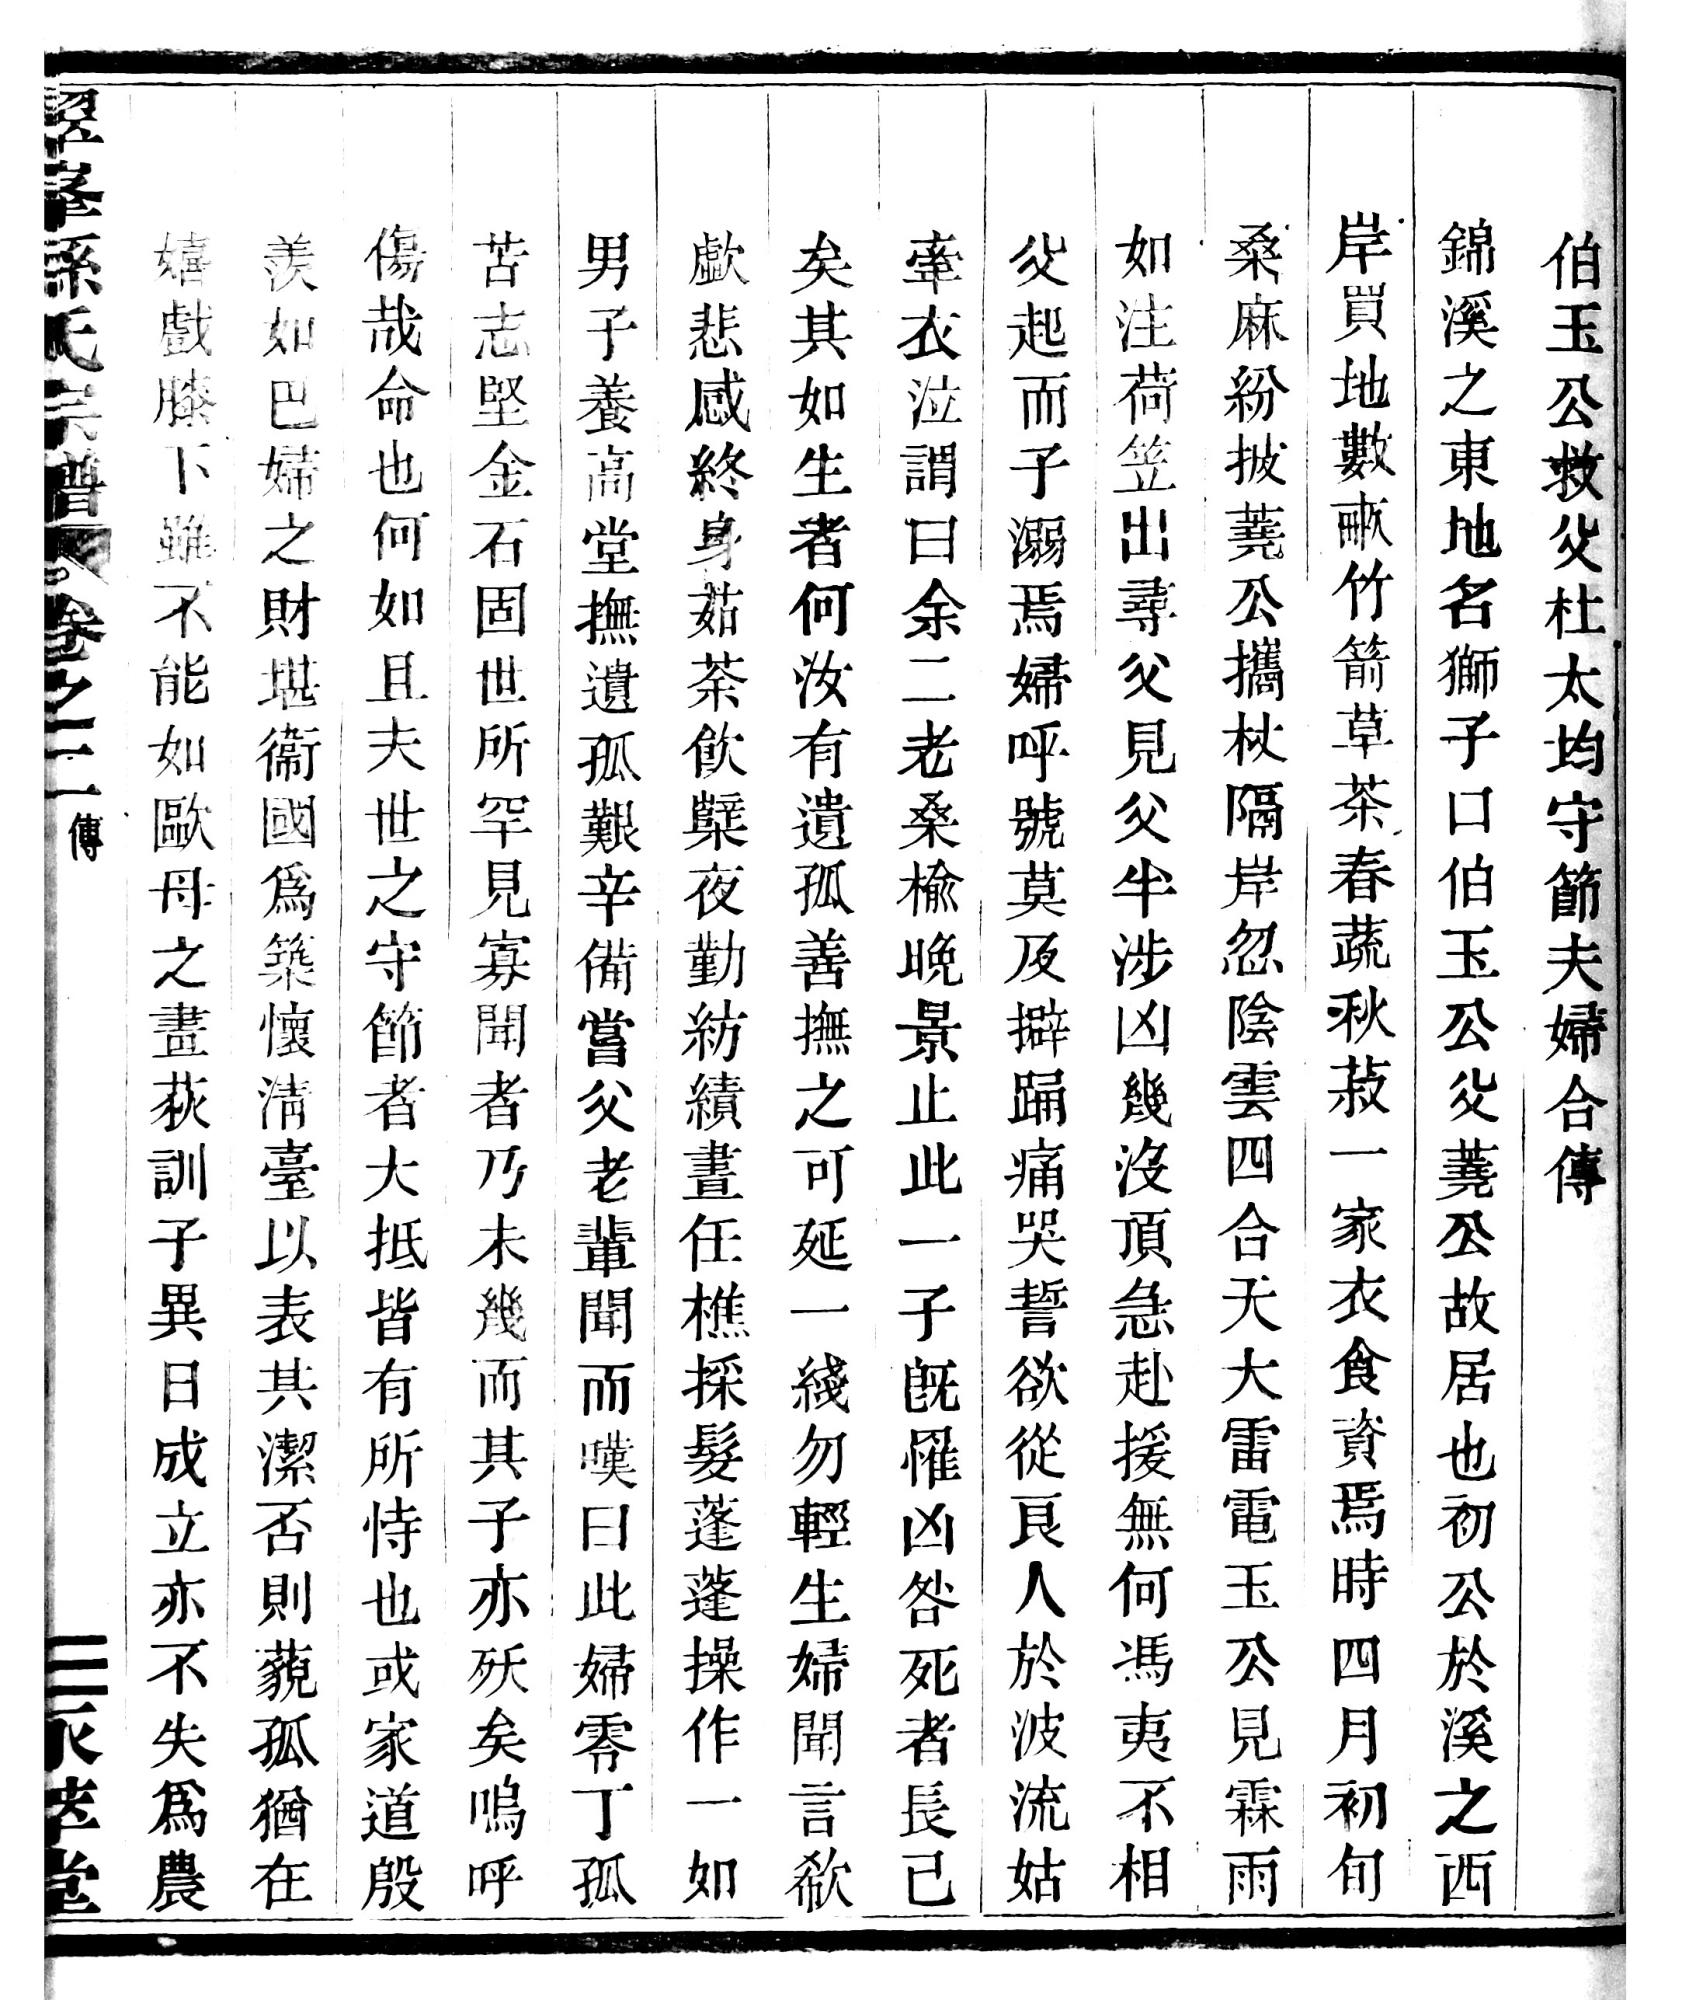 伯玉公救父杜太均守節夫婦合傳
錦溪之東地名獅子口伯玉公父蕘公故居也初公於溪之西
岸買地數畝竹箭草茶春蔬秋菽一家衣食資焉時四月初旬
桑麻紛披蕘公攜杖隔岸忽陰雲四合天大雷電玉公見霖雨
如注荷笠出尋父見父半涉凶幾沒頂急赴援無何馮夷不相
父起而子溺焉婦呼號莫及擗踊痛哭誓欲從良人於波流姑
牽衣泣謂曰余二老桑榆晚景止此一子既罹凶咎死者長已
矣其如生者何汝有遺孤善撫之可延一綫勿輕生婦聞言欷
歔悲感終身茹荼飲櫱夜勤紡績晝任樵採髮蓬蓬操作一如
男子養高堂撫遺孤艱辛備嘗父老輩聞而嘆曰此婦零丁孤
苦志堅金石固世所罕見寡聞者乃未幾而其子亦殀矣嗚呼
傷哉命也何如且夫世之守節者大抵皆有所恃也或家道殷
羡如巴婦之財堪衞國爲築懷清臺以表其潔否則藐孤猶在
嬉戲膝下雖不能如歐母之畫荻訓子異日成立亦不失爲農
翠峯孫氏宗譜 卷之二 傳 三 永孝堂